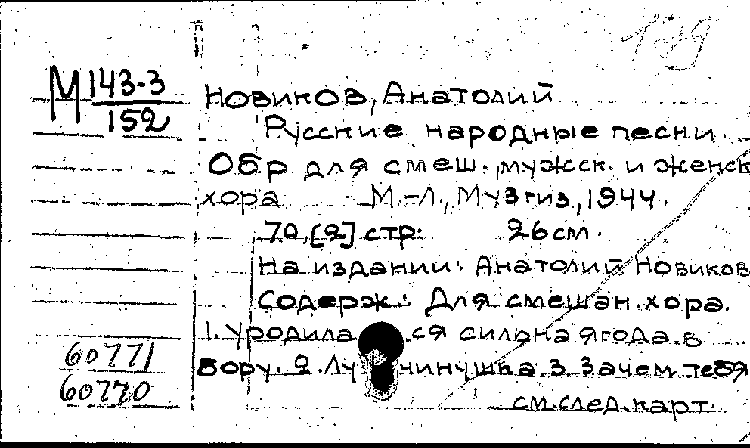 199
М 143-3
152
Новиков, Анатолий
Русские народные песни.
Обр для смеш., мужск. и женск
хора М.-Л., Музгиз, 1944.
70, [2] стр. 26 см.
На издании: Анатолий Новиков
Содерж.: Для смешан. хора.
1. Уродилася сильна ягода в
бору. 2. Лучинушка. 3. Зачем тебя
см. след. карт.
60771
60770